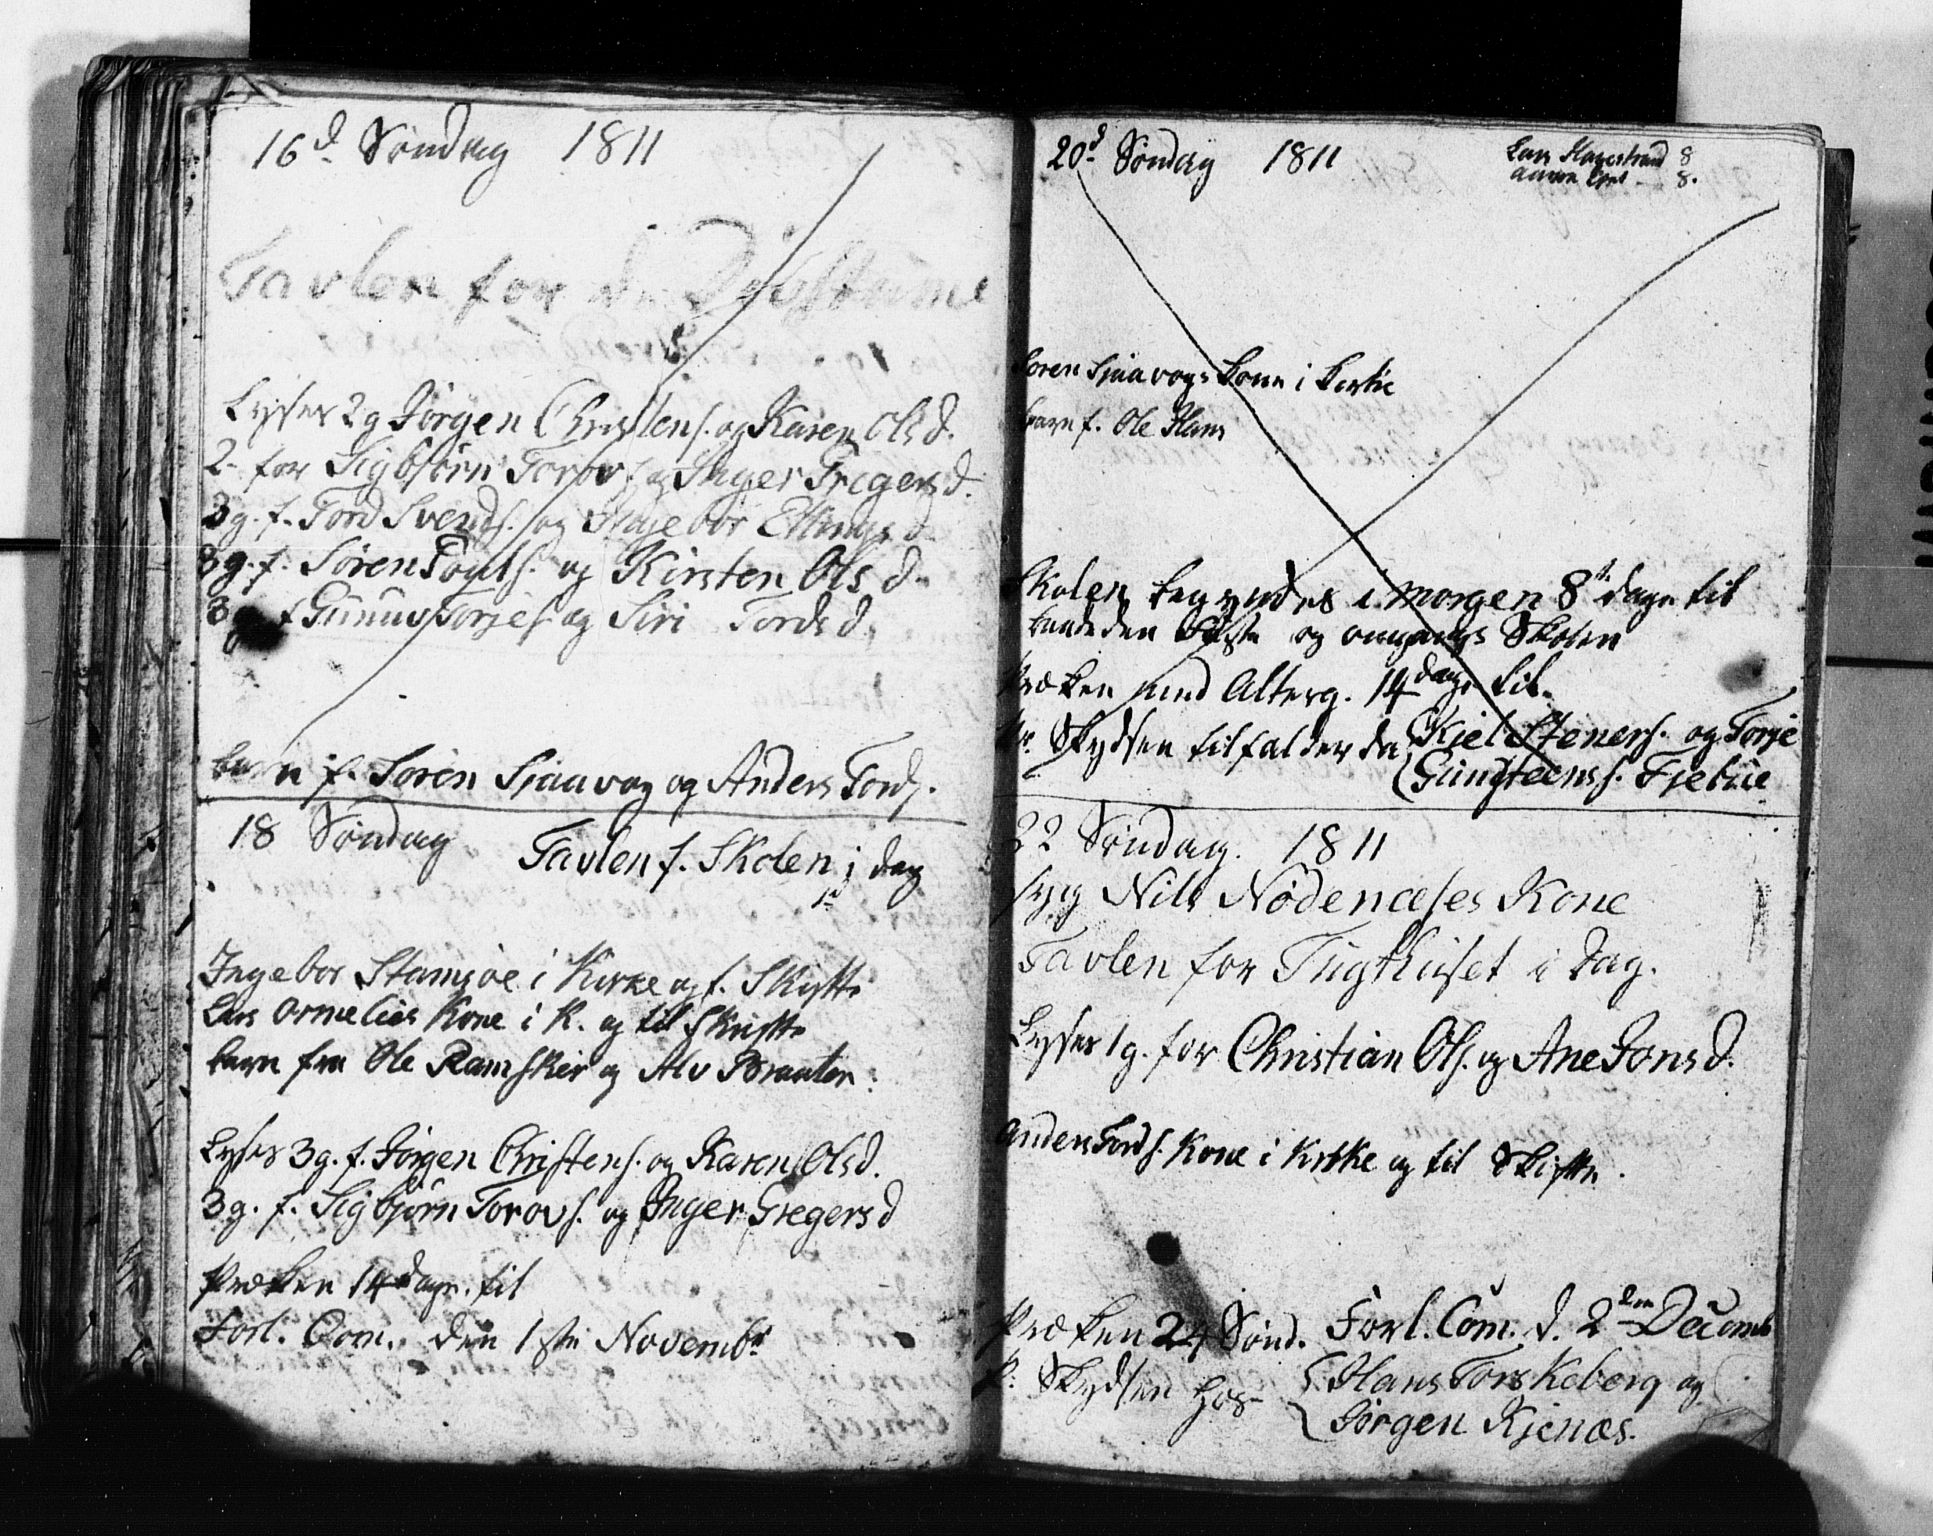 16d Søndag 1811
Tavlen for de Døvstume
Lyses 2 g Jørgen Christens. og Karen Olsd.
2- for Sigbjørn Torovs og Inger Gregersd.
3 g. f. Tord Svends. og Ingebor Ellingsd.
3 g. f. Søren Pouls. og Kirsten Olsd.
3 g f Gunnus Torjes. og Siri Tordsd.
barn f. Søren Sjaavog og Anders Tords.
18 Søndag Tavlen f. Skolen i dag
Ingebor Stamsøe i Kirke og f. Skrifte
Lars Ormelies Kone i K. og til Skrifte
barn fra Ole Ramskier og Alv Braaten.
Lyses 3 g. f. Jørgen Christens. og Karen Olsd.
3 g. f. Sigbjørn Torovs. og Inger Gregersd
Præken 14 dage til
Forl. Com. den 1ste Novembr
20d Søndag 1811
Lars Hagestrand 8
8.
Søren Sjaavogs Kone i Kirke
barn f. Ole Hans
Skolen begyndes i morgen 8te dage til
baade den faste og omgangs Skolen
Præken med Alterg. 14 dage til.
Pr. Skydsen tilfalder da Kiel Steners. og Torje
Gunsteens. Fjebue
22 Søndag. 1811
syg Nils Nødenæses Kone
Tavlen for Tugthuset i dag.
Lyses 1 g. for Christian Ols. og Ane Jonsd.
Anders Tords. Kone i Kirke og til Skrifte.
Præken 24 Sønd. Forl. Com. d. 2den Decemb
P. Skydsen hos Hans Torskeberg og
Jørgen Kjenæs.